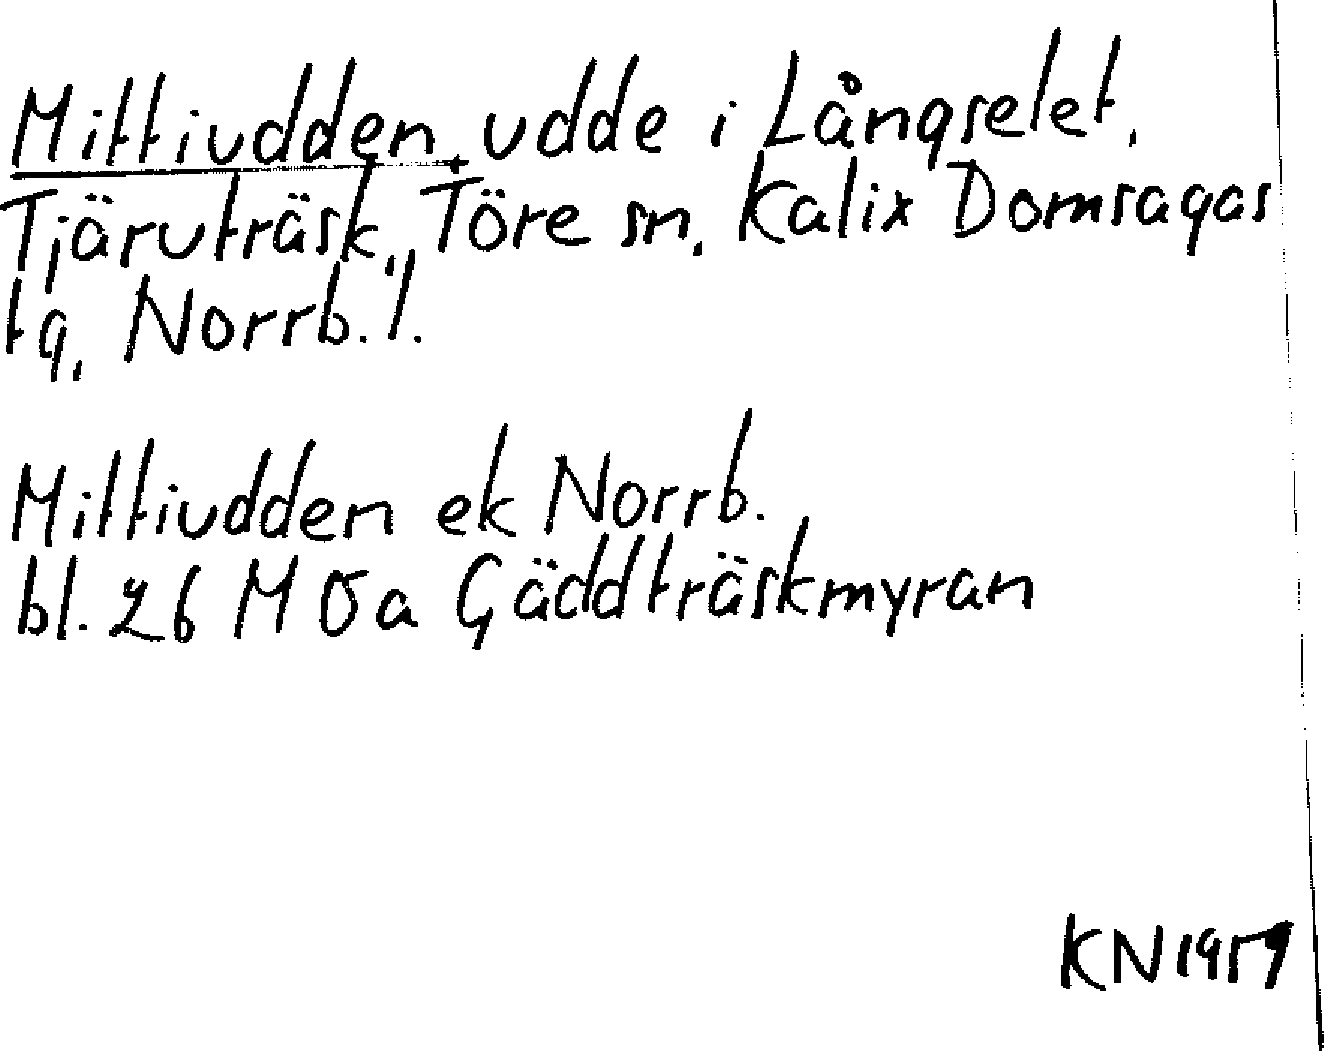 Mittiudden, udde i Långselet,
Tjäruträsk, Töre sn, Kalix Domsagas
tg, Norrb. l.
Mittiudden ek Norrb.
bl. 26 M 0a Gäddträskmyran
KN